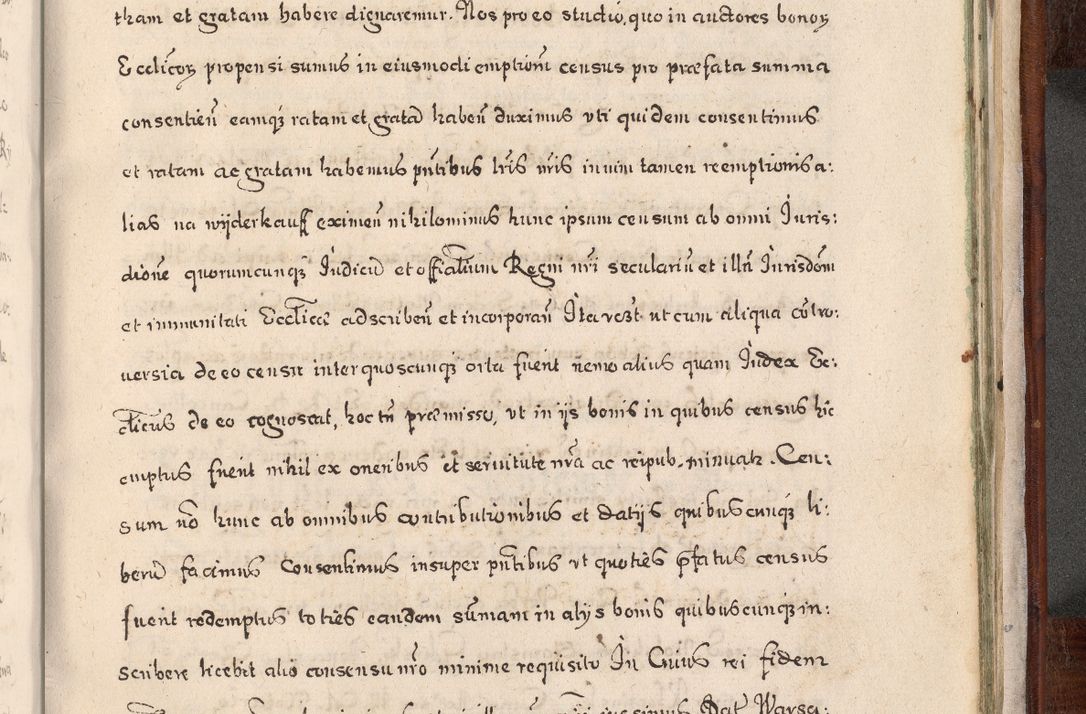 tham et gratam habere dignaremur. Nos pro eo studio, quo in auctores bonoꝝ
Ecclicoꝝ propensi sumus in eiusmodi emptionẽ census pro præfata summa
consentien̄ eamqꝫ ratam et gratã haben̄ duximus vti quidem consentimus
et ratam ac gratam habemus pn̄tibus lr̄is nr̄is in vim tamen reemptionis a:
lias na wÿderkauff eximen̄ nihilominus hunc ipsum censum ab omni Juris:
dione quorumcunqꝫ Judicũ et officialium Regni nr̄i seculariũ et illm̄ Jurisdom̄
et immunitati Ecclicæ adscriben̄ et incorporan̄ Ita vt ut cum aliqua cõtro:
uersia de eo censu inter quoscunqꝫ orta fuerit nemo alius quam Judex Ec:
clicus de eo cognoscat, hoc tn̄ præmisso, vt in ijs bonis in quibus census hic
emptus fuerit nihil ex oneribus et seruitute nr̄a ac reipub. minuatr. Cen:
sum vō hunc ab omnibus contributionibus et datijs quibuscunqꝫ li:
berũ facimus Consentimus insuper pn̄tibus vt quoties p̄fatus census
fuerit redemptus toties eandem sum̄am in alijs bonis quibuscunqꝫ in:
scribere licebit alio consensu nr̄o minime requisito In Cuius rei fidem
Dat Warsa: